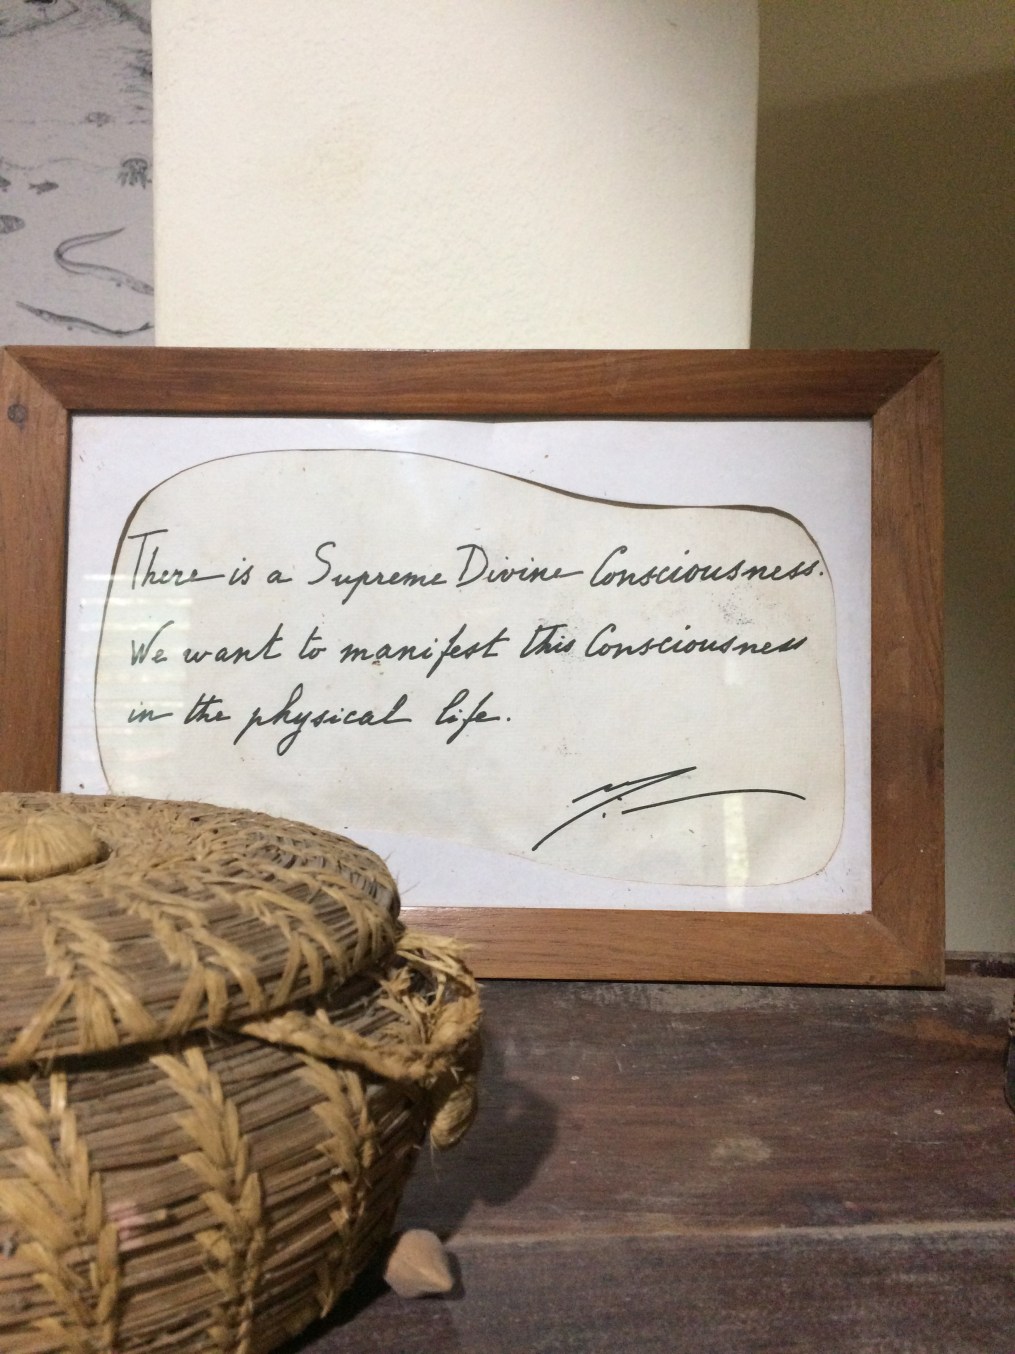 There is a Supreme Divine Consciousness.
We want to manifest this Consciousness
in the physical life.